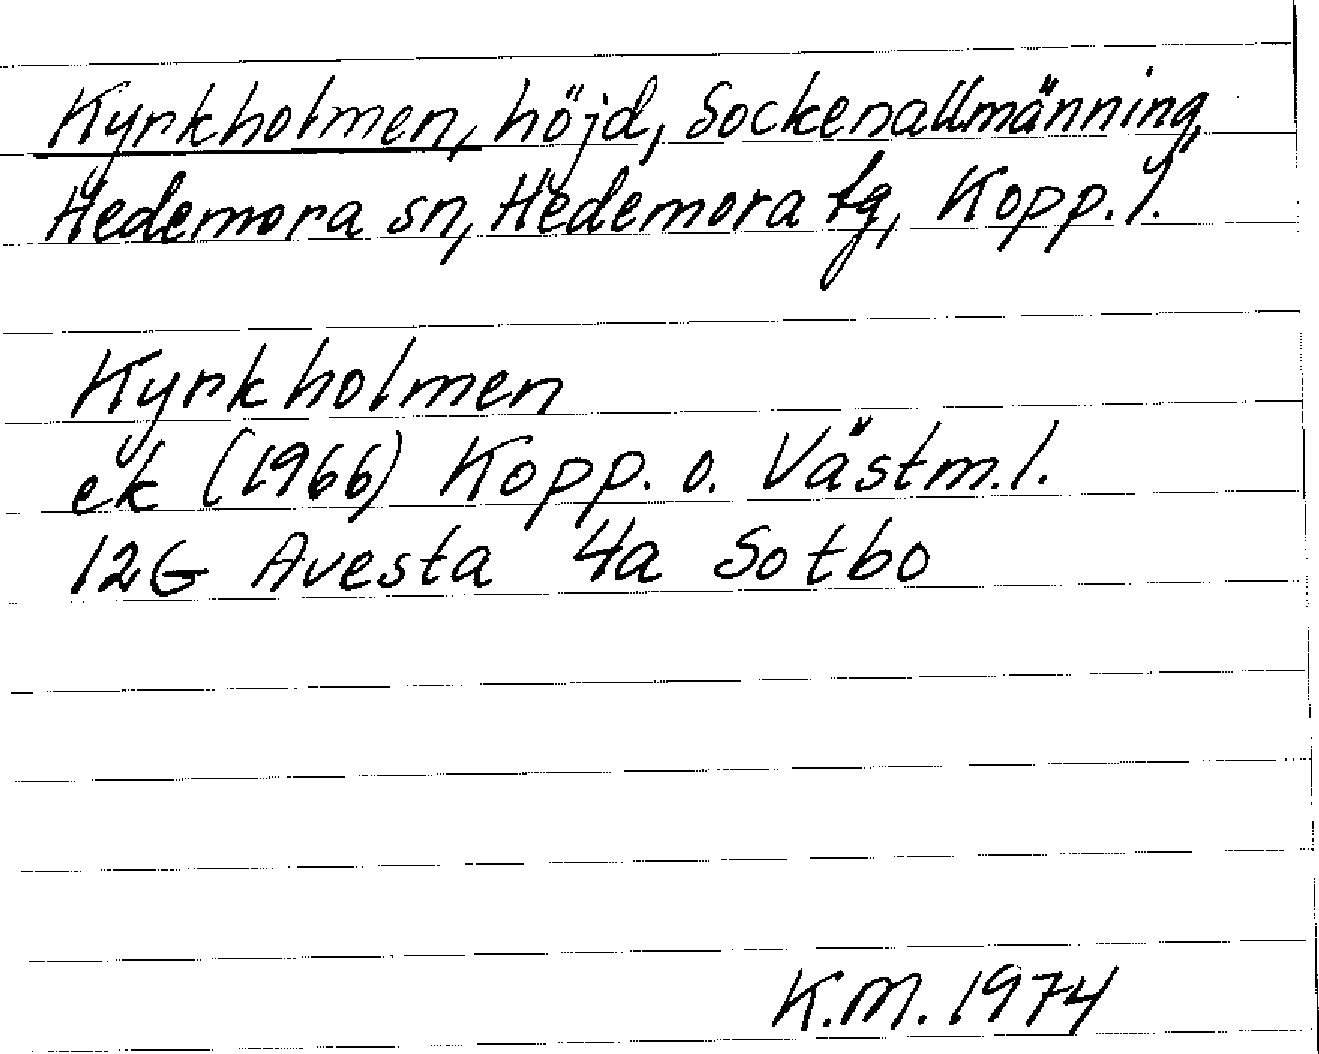 Kyrkholmen, höjd, Sockenallmänning,
Hedemora sn, Hedemora tg, Kopp. l.
Kyrkholmen
ek (1966) Kopp. o. Västm. l.
12G Avesta 4a Sotbo
K.M. 1974